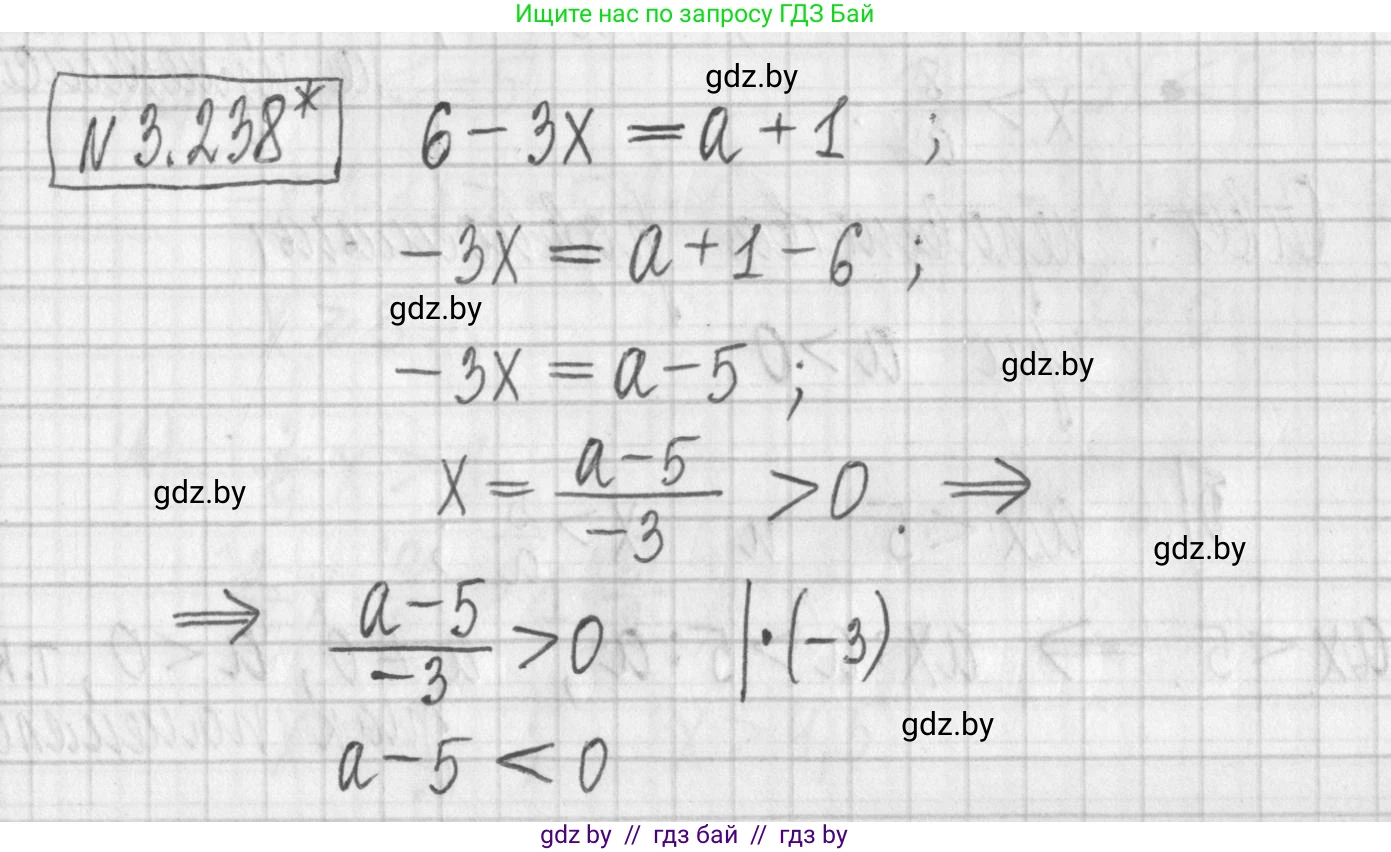 Ищите нас по запросу ГДЗ Бай
gdz.by
N 3.238* 6 - 3x = a + 1 ;
-3x = a + 1 - 6 ;
gdz.by
-3x = a - 5 ; gdz.by
gdz.by x = (a - 5)/(-3) > 0 . ⇒
gdz.by
⇒ (a - 5)/(-3) > 0 | · (-3)
gdz.by
a - 5 < 0
gdz by // гдз бай // гдз by